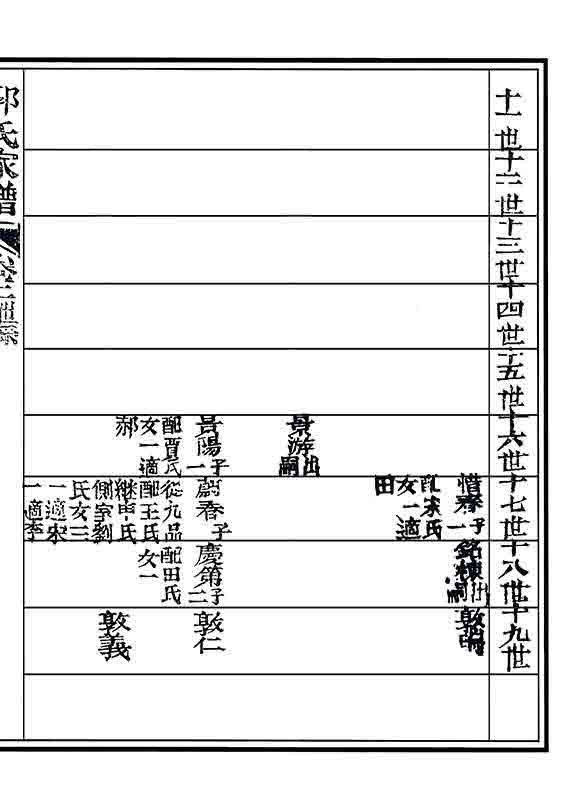 十一世
十二世
十三世
十四世
十五世
十六世
十七世
十八世
十九世
惜春子一
配宋氏
女一適
田
銘棟出嗣
景游出嗣
景陽子一
配賈氏
女一適
郝
蔚春子
從九品
配王氏
繼申氏
側室劉
氏女三
一適宋
一適李
慶第子二
配田氏
女一
敦仁
敦義
郭氏家譜
卷二世系